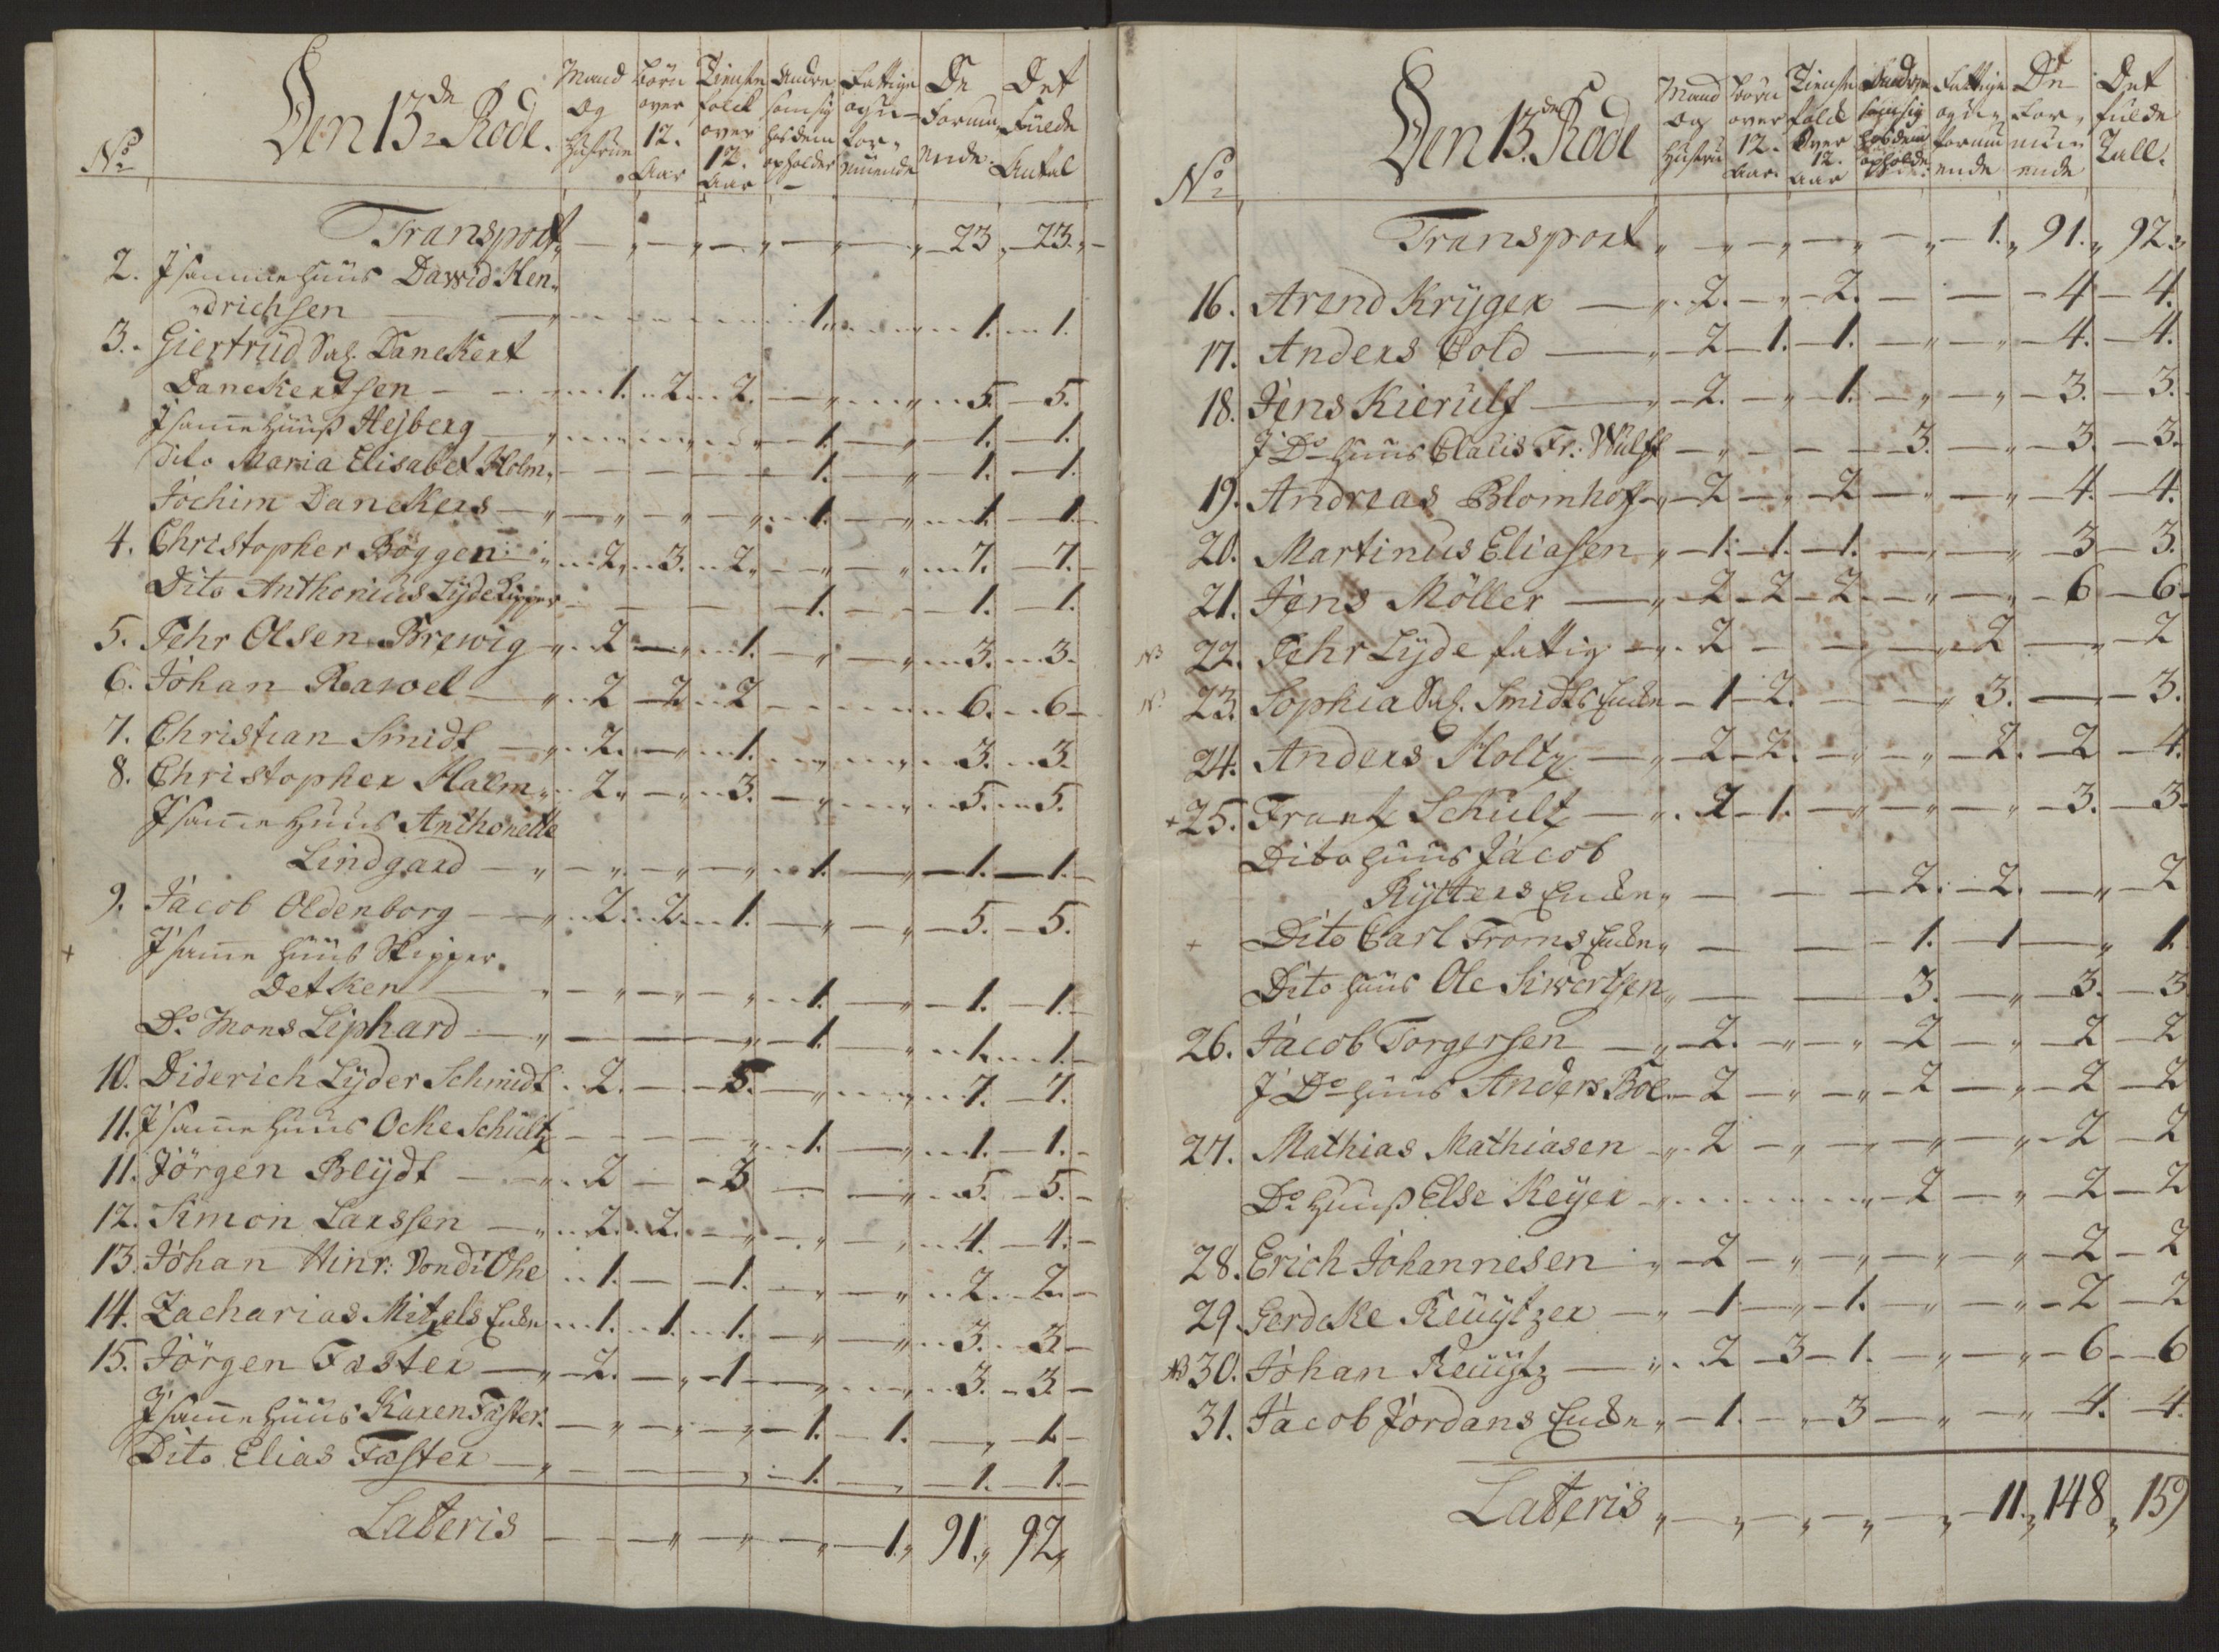 No
Den 13de Rode.
Mand og Hustrue
Børn over 12. Aar
Tieneste folck over 12. Aar
Andre som sig hos dem opholder
Fattige og u-formuende
De Formu-ende.
Det Fulde Antal
Transport " — " — " — " — — " 23 " 23 " —
2. I samme Huus Dawid Hen-
drichsen — 1. — 1. — 1.
3. Giertrüd Sal. Danckert
Danckertsen — 1. 2. 2. — " — " 5. — 5.
I samme Huuß Hejberg — 1. — 1. — 1.
Dito Maria Elisabet Holm. — 1. — 1. — 1.
Jochim Danckers — " — " — 1. — 1. — 1.
4. Christopher Böggen — 2. 3. 2. — " — " 7. — 7.
Dito Anthonius Lyde — 1. — 1. — 1.
5. Fehr Olsen Brewig — 2 — " 1. — " — " 3. — 3.
6. Johan Rawel — 2 — 2 — 2 — 6. — 6 —
7. Christian Smidt — 2. — " 1. — 3. — 3
8. Christopher Halm — 2. — " 3. — 5. — 5.
I samme Huus Anthonette
Lindgard — " — " — " — 1. — " — 1. — 1. —
9. Jacob Oldenborg — " 2. 2. 1. — " — " — 5. — 5.
+ I samme Huus Skipper
Detken — " — " — " — 1. — " — 1. — 1. —
Do Mons Liphard — " — 1. — " 1. — 1. —
10. Diderich Lyder Schmidt. 2. — 5. — " — 7. — 7.
11. I samme Huus Ocke Schultz — 1. — " 1. — 1. —
11. Jörgen Blydt — " 2 — 3 — — " 5. — 5. —
12. Simon Larssen — " 2. 2. — " — " — " 4. — 4. —
13. Johan Hinr: Von di Ohe — 1. — 1. — " — " 2. 2. —
14. Zacharias Mitzels Encke — 1. 1. 1. — " — " 3. 3 —
15. Jörgen Faster — " 2. — " 1 — " — 3. — 3. —
I samme Huus Karen Faster. — " — " — 1. — 1. — " — 1. —
Dito Elias Faster — " — — — " 1. — " — 1. — 1. —
Lateris — — " — " — " — 1. " 91. " 92 "
No
Den 13de Rode
Mand og Hustru
Børn over 12. Aar.
Tieneste folck Over 12. Aar
Andre som sig hos dem opholder
Fattige og u-formuende
De For-mu-ende
Det fulde Tall.
Transport " — " — " — " — " — 1. " 91. " 92. "
16. Arend Kryger — " 2. — " 2. — — — 4 — 4.
17. Anders Cold — " 2 — 1. — 1. — " — " — 4. — 4.
18. Jens Kierulf — " 2. — " 1. — " — " — 3. — 3.
I Do Huus Claus Fr: Wulff — " — — 3. — " — 3. — 3.
19. Andreas Blomhoff — " 2 — " 2 — " — " — 4. — 4.
20. Martinus Eliasen " — 1. — 1. — 1. — " — " — 3 — 3.
21. Jens Möller — " 2 — 2 — 2 — " — " — 6 — 6.
NB 22. Fehr Lyde fattig — " 2 — — — " 2 — " — 2
N 23. Sophia Sal. Smidts Encke — 1 — 2. — " 3. — — 3.
24. Anders Holtz — " 2 — 2. — " — " — 2. — 2 — 4.
+ 25. Frantz Schultz — " 2 — 1. — " — " — " — 3. — 3
Dito Huus Jacob
Rytters Encke " — — — 2. — 2. — " — 2
+ Dito Carl Froms Encke " — — — 1. — 1 — " 1.
Dito Huus Ole Siwertsen " — — 3. — " — 3. — 3
26. Jacob Torgersen — " 2. — " — " 2 — " — 2 — 2
I Do Huus Anders Böe — 2 — " — " 2 — " — 2 — 2
27. Mathias Mathiasen — " 2 — " — " — " — " 2 — 2
Do Huuß Else Keyer — " — " 2 — " — 2 — 2
28. Erich Johannesen " — 2 — " — " — " — " — 2 — 2
29. Gerdcke Reuytzer — " 1 — " 1. — " — " — 2 — 2
NB 30. Johan Reuytz — " 2 — 3 — 1. — " — " — 6 — 6
31. Jacob Jordans Encke " — 1. — " 3 — " — " — 4. — 4.
Lateris " — " — " — " — " — 11. " 148 " 159